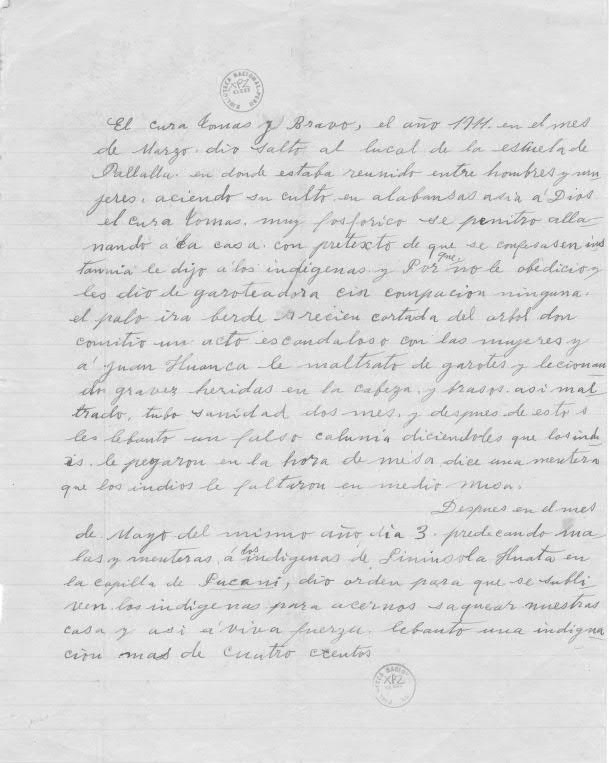 BIBLIOTECA NACIONAL PERU
XPZ
El cura Tomas y Bravo, el año 1911. en el mes
de Marzo. dio salto al lucal de la eskuela de
Pallalla. en donde estaba reunido entre hombres y mu
jeres, aciendo su culto en alabansas asia á Dios
el cura Tomas. muy fosforico se penitro alla
nando a la casa. con pretexto de que se confesasen ins
tannia le dijo á los indígenas. y Por que no le abedicio y
les dio de garoteadora cin compacion ninguna.
el palo ira berde s recien cortada del arbol don
comitio un acto escandaloso con las mujeres y
á Juan Huanca le maltrato de garotes y lecionan
do gravez heridas en la cabeza. y brasos. asi mal
trado. tubo sanidad dos mes. y despues. de esto s
les lebanto un falso calunia diciendoles que los indi
is. le pegaron en la hora de misa dice una mentera
que los indios le faltaron en medio misa.
Despues en el mes
de Mayo del mismo año dia 3. predecando ma
las y menteras á los indigenas de Lininsola Huata en
la capilla de Pucani, dio orden para que se subli
ven. los indigenas para acernos saquear nuestras
casa y asi á viva fuerza. lebanto una indigna
cion mas de cuatro cientos
XPZ